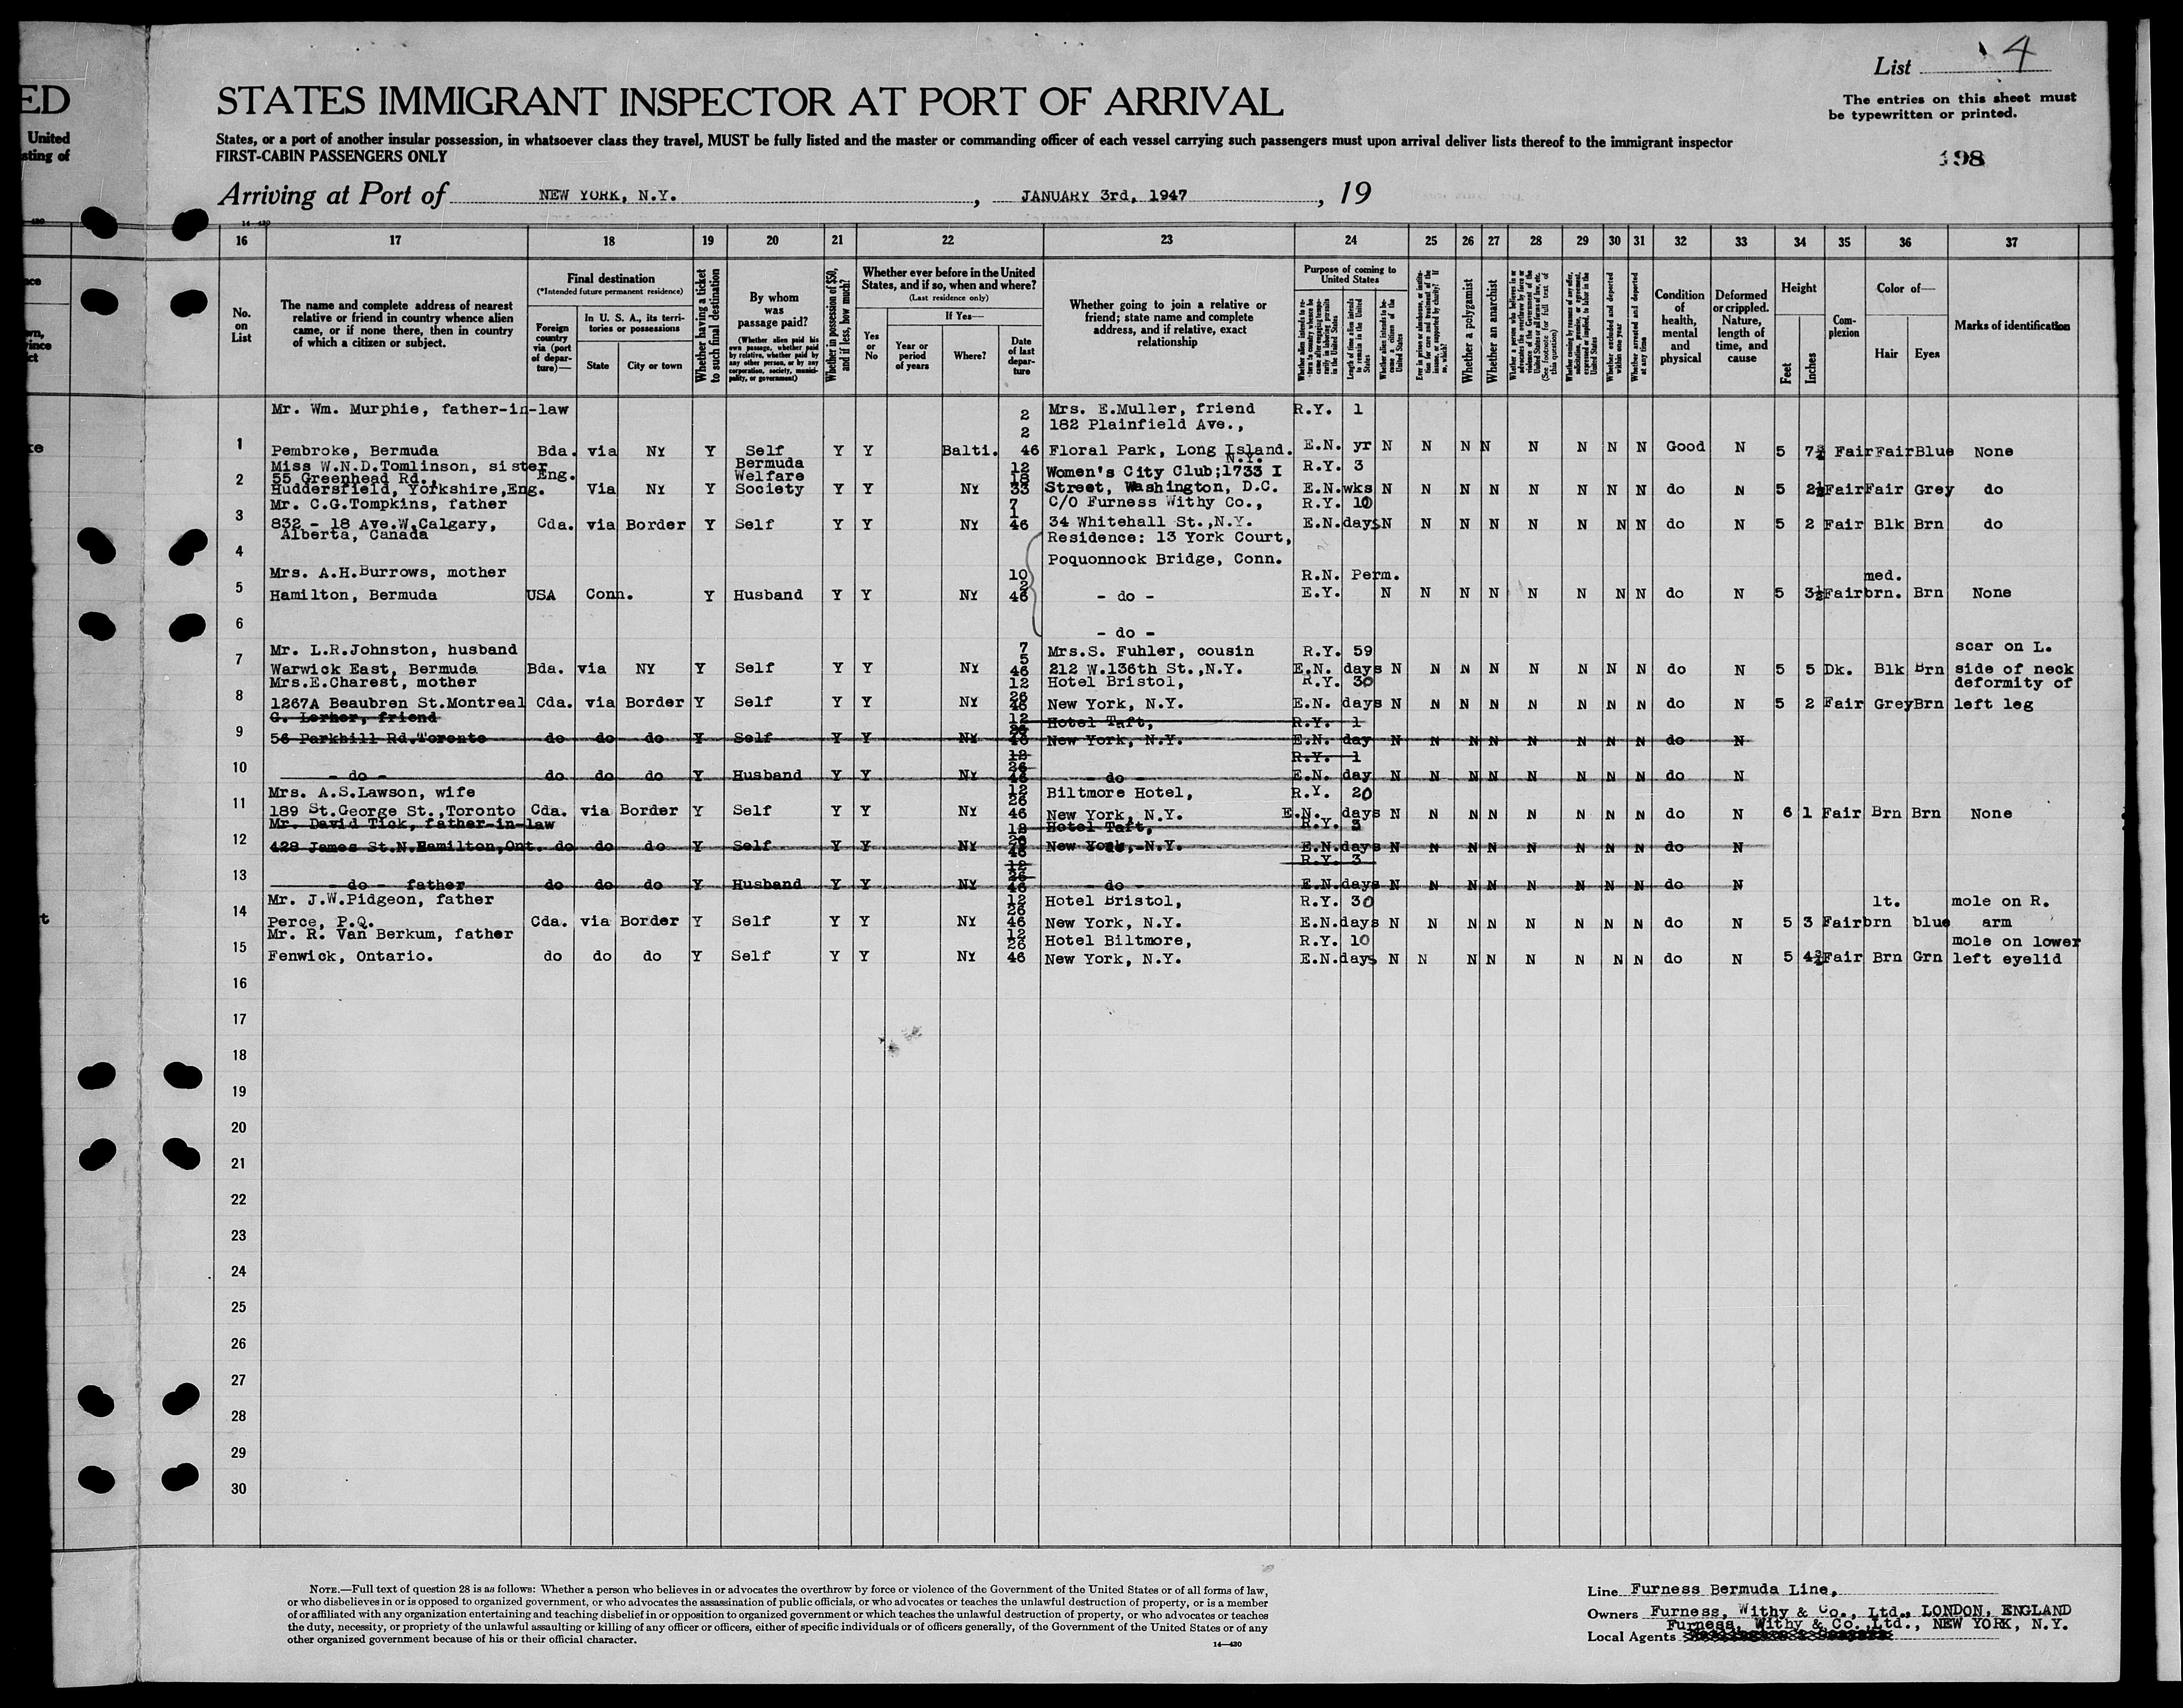 List 4
ED
STATES IMMIGRANT INSPECTOR AT PORT OF ARRIVAL
The entries on this sheet must
be typewritten or printed.
United
sting of
States, or a port of another insular possession, in whatsoever class they travel, MUST be fully listed and the master or commanding officer of each vessel carrying such passengers must upon arrival deliver lists thereof to the immigrant inspector
FIRST-CABIN PASSENGERS ONLY
198
Arriving at Port of NEW YORK, N.Y. , JANUARY 3rd, 1947 , 19
16 17 18 19 20 21 22 23 24 25 26 27 28 29 30 31 32 33 34 35 36 37
No. on List
The name and complete address of nearest relative or friend in country whence alien came, or if none there, then in country of which a citizen or subject.
Final destination
(*Intended future permanent residence)
Foreign country via (port of departure)—
In U. S. A., its territories or possessions
State
City or town
Whether having a ticket to such final destination
By whom was passage paid?
(Whether alien paid his own passage, whether paid by relative, whether paid by any other person, or by any corporation, society, municipality, or government)
Whether in possession of $50, and if less, how much?
Whether ever before in the United States, and if so, when and where?
(Last residence only)
Yes or No
If Yes—
Year or period of years
Where?
Date of last departure
Whether going to join a relative or friend; state name and complete address, and if relative, exact relationship
Purpose of coming to United States
Length of time alien intends to remain in the United States
Whether alien intends to become a citizen of the United States
Whether a polygamist
Whether an anarchist
Whether excluded and deported within one year
Whether arrested and deported at any time
Condition of health, mental and physical
Deformed or crippled. Nature, length of time, and cause
Height
Feet
Inches
Complexion
Color of—
Hair
Eyes
Marks of identification
Mr. Wm. Murphie, father-in-law 2 Mrs. E.Muller, friend R.Y. 1
2 182 Plainfield Ave.,
1 Pembroke, Bermuda Bda. via NY Y Self Y Y Balti. 46 Floral Park, Long Island. E.N. yr N N N N N N N N Good N 5 7½ Fair Fair Blue None
N.Y.
Miss W.N.D.Tomlinson, sister Bermuda 12 Women's City Club;1733 I R.Y. 3
2 55 Greenhead Rd., Eng. Welfare 18
Huddersfield, Yorkshire,Eng. Via NY Y Society Y Y NY 33 Street, Washington, D.C. E.N. wks N N N N N N N N do N 5 2½ Fair Fair Grey do
Mr. C.G.Tompkins, father 7 C/O Furness Withy Co., R.Y. 10
3 832 - 18 Ave.W.Calgary, Cda. via Border Y Self Y Y NY 1 46 34 Whitehall St.,N.Y. E.N. days N N N N N N N N do N 5 2 Fair Blk Brn do
Alberta, Canada Residence: 13 York Court,
4 Poquonnock Bridge, Conn.
Mrs. A.H.Burrows, mother 10 R.N. Perm. med.
5 Hamilton, Bermuda USA Conn. Y Husband Y Y NY 2 46 - do - E.Y. N N N N N N N N do N 5 3½ Fair brn. Brn None
6 - do -
Mr. L.R.Johnston, husband 7 Mrs.S. Fuhler, cousin R.Y. 59 scar on L.
7 Warwick East, Bermuda Bda. via NY Y Self Y Y NY 5 46 212 W.136th St.,N.Y. E.N. days N N N N N N N N do N 5 5 Dk. Blk Brn side of neck
Mrs.E.Charest, mother 12 Hotel Bristol, R.Y. 30 deformity of
8 1267A Beaubren St.Montreal Cda. via Border Y Self Y Y NY 26 46 New York, N.Y. E.N. days N N N N N N N N do N 5 2 Fair Grey Brn left leg
G. Lerner, friend 12 Hotel Taft, R.Y. 1
9 56 Parkhill Rd.Toronto do do do Y Self Y Y NY 26 46 New York, N.Y. E.N. day N N N N N N N N do N
12 R.Y. 1
10 - do - do do do Y Husband Y Y NY 26 46 - do - E.N. day N N N N N N N N do N
Mrs. A.S.Lawson, wife 12 Biltmore Hotel, R.Y. 20
11 189 St.George St.,Toronto Cda. via Border Y Self Y Y NY 26 46 New York, N.Y. E.N. days N N N N N N N N do N 6 1 Fair Brn Brn None
Mr. David Tick, father-in-law 12 Hotel Taft, R.Y. 3
12 428 James St.N.Hamilton,Ont. do do do Y Self Y Y NY 26 46 New York, N.Y. E.N. days N N N N N N N N do N
12 R.Y. 3
13 - do - father do do do Y Husband Y Y NY 26 46 - do - E.N. days N N N N N N N N do N
Mr. J.W.Pidgeon, father 12 Hotel Bristol, R.Y. 30 lt. mole on R.
14 Perce, P.Q. Cda. via Border Y Self Y Y NY 26 46 New York, N.Y. E.N. days N N N N N N N N do N 5 3 Fair brn blue arm
Mr. R. Van Berkum, father 12 Hotel Biltmore, R.Y. 10 mole on lower
15 Fenwick, Ontario. do do do Y Self Y Y NY 26 46 New York, N.Y. E.N. days N N N N N N N N do N 5 4¾ Fair Brn Grn left eyelid
16
17
18
19
20
21
22
23
24
25
26
27
28
29
30
NOTE.—Full text of question 28 is as follows: Whether a person who believes in or advocates the overthrow by force or violence of the Government of the United States or of all forms of law,
or who disbelieves in or is opposed to organized government, or who advocates the assassination of public officials, or who advocates or teaches the unlawful destruction of property, or is a member
of or affiliated with any organization entertaining and teaching disbelief in or opposition to organized government or which teaches the unlawful destruction of property, or who advocates or teaches
the duty, necessity, or propriety of the unlawful assaulting or killing of any officer or officers, either of specific individuals or of officers generally, of the Government of the United States or of any
other organized government because of his or their official character.
14—430
Line Furness Bermuda Line,
Owners Furness, Withy & Co., Ltd., LONDON, ENGLAND
Furness, Withy & Co.,Ltd., NEW YORK, N.Y.
Local Agents